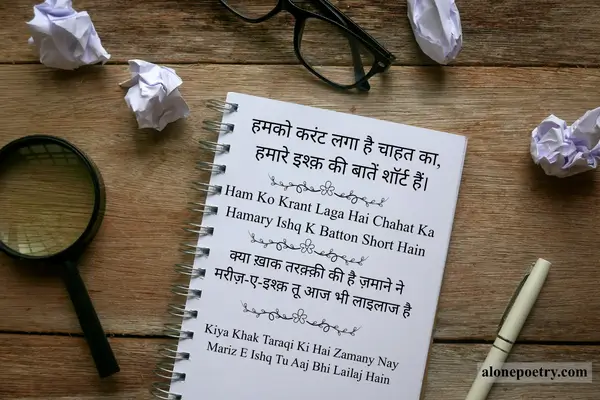 हमको करंट लगा है चाहत का,
हमारे इश्क़ की बातें शॉर्ट हैं।
Ham Ko Krant Laga Hai Chahat Ka
Hamary Ishq K Batton Short Hain
क्या ख़ाक तरक़्क़ी की है ज़माने ने
मरीज़-ए-इश्क़ तू आज भी लाइलाज है
Kiya Khak Taraqi Ki Hai Zamany Nay
Mariz E Ishq Tu Aaj Bhi Lailaj Hain
alonepoetry.com